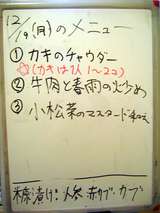 12/19(月)のメニュー
① カキのチャウダー
☆(カキは1人1〜2コ)
② 牛肉と春雨の炒め
③ 小松菜のマスタード和え
糠漬け:人参 赤カブ・カブ